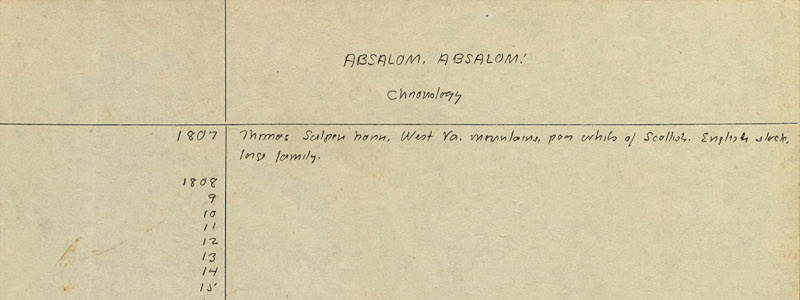 ABSALOM, ABSALOM!
Chronology
1807 Thomas Sutpen born, West Va. mountains, poor whites of Scottish-English stock,
large family.
1808
9
10
11
12
13
14
15